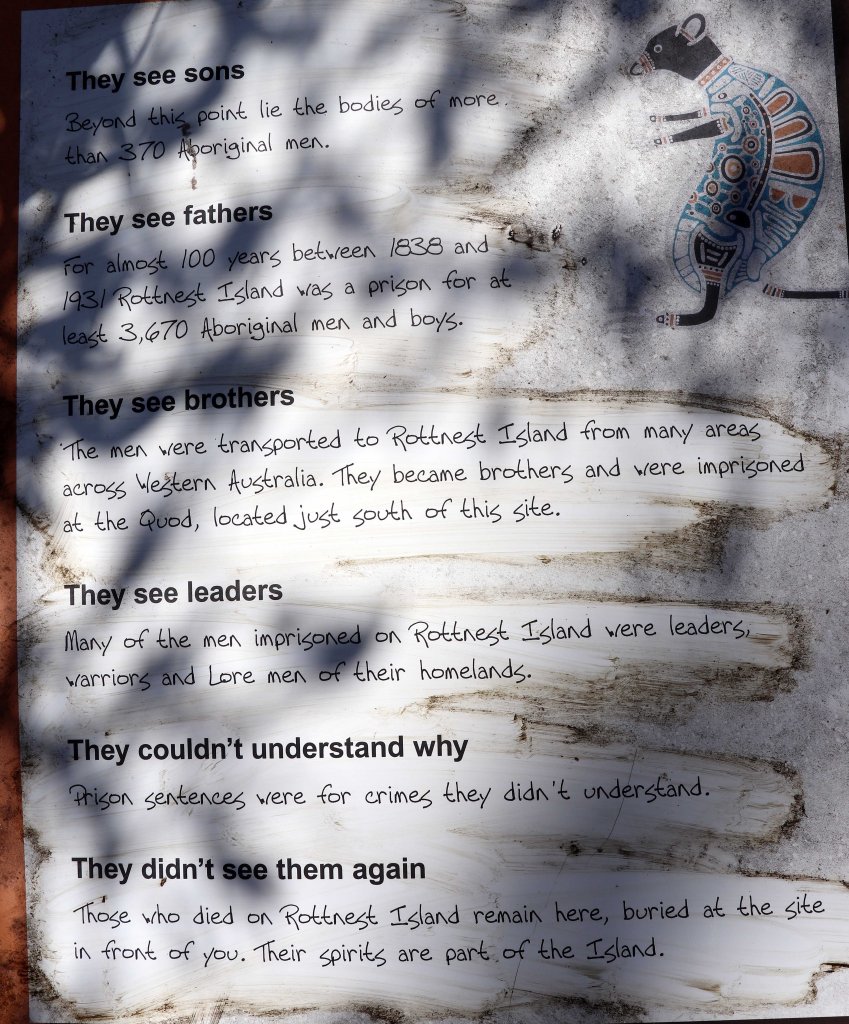 They see sons
Beyond this point lie the bodies of more
than 370 Aboriginal men.
They see fathers
For almost 100 years between 1838 and
1931 Rottnest Island was a prison for at
least 3,670 Aboriginal men and boys.
They see brothers
The men were transported to Rottnest Island from many areas
across Western Australia. They became brothers and were imprisoned
at the Quod, located just south of this site.
They see leaders
Many of the men imprisoned on Rottnest Island were leaders,
warriors and Lore men of their homelands.
They couldn't understand why
Prison sentences were for crimes they didn't understand.
They didn't see them again
Those who died on Rottnest Island remain here, buried at the site
in front of you. Their spirits are part of the Island.